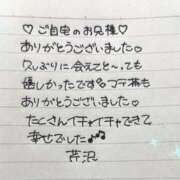 ♡ご自宅のお兄様♡
ありがとうございました♡
久しぶりに会えてと〜っても
嬉しかったです♡マテ茶も
ありがとうございました♡
たくさんイチャイチャできて
幸せでした♪
芹沢